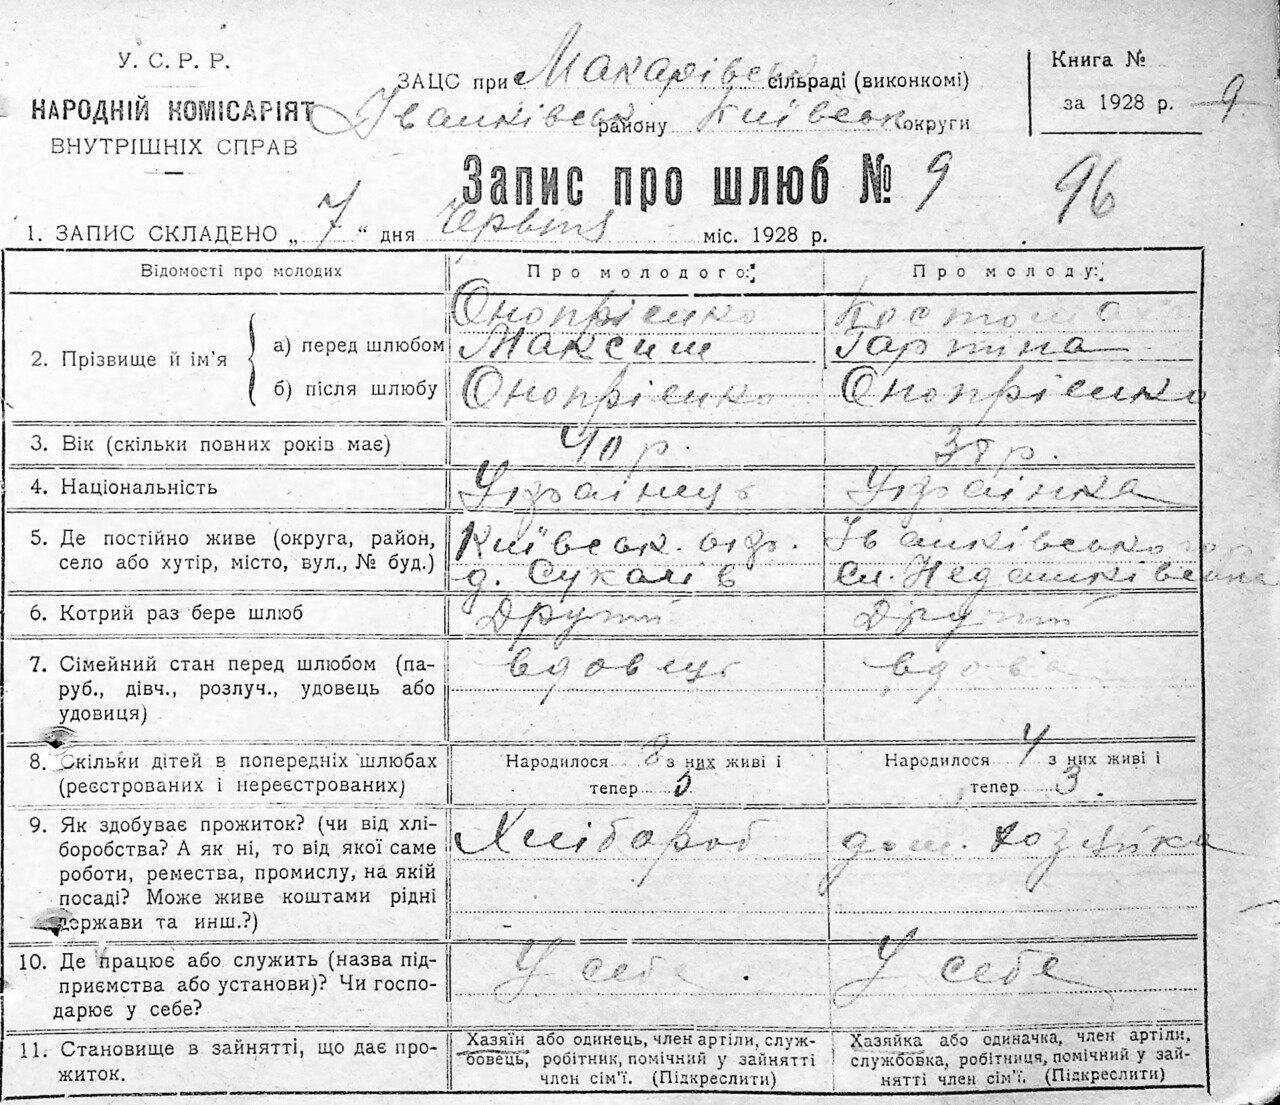 У. С. Р. Р.
НАРОДНІЙ КОМІСАРІЯТ
ВНУТРІШНІХ СПРАВ
ЗАЦС при Макарівськ сільраді (виконкомі)
Іванківськ району Київськ округи
Книга №
за 1928 р. 9
Запис про шлюб № 9
96
1. ЗАПИС СКЛАДЕНО „ 7 “ дня Червня міс. 1928 р.
Відомості про молодих Про молодого: Про молоду:
2. Прізвище й ім'я
а) перед шлюбом
Онопрієнко
Максим
Костомаха
б) після шлюбу
Онопрієнко
Онопрієнко
3. Вік (скільки повних років має) 40 р. 38 р.
4. Національність Українець Українка
5. Де постійно живе (округа, район,
село або хутір, місто, вул., № буд.)
Київськ. окр.
д.
Іванківського
сл.
6. Котрий раз бере шлюб Другий Другий
7. Сімейний стан перед шлюбом (па-
руб., дівч., розлуч., удовець або
удовиця)
вдовець
вдова
8. Скільки дітей в попередніх шлюбах
(реєстрованих і нереєстрованих)
Народилося 8 з них живі і
тепер 5
Народилося 4 з них живі і
тепер 3.
9. Як здобуває прожиток? (чи від хлі-
боробства? А як ні, то від якої саме
роботи, ремества, промислу, на якій
посаді? Може живе коштами рідні
держави та инш.?)
Хлібороб
дом. хозяйка
10. Де працює або служить (назва під-
приємства або установи)? Чи госпо-
дарює у себе?
У себе.
У себе
11. Становище в зайнятті, що дає про-
житок.
Хазяїн або одинець, член артіли, служ-
бовець, робітник, помічний у зайнятті
член сім'ї. (Підкреслити)
Хазяйка або одиначка, член артіли,
службовка, робітниця, помічний у зай-
нятті член сім'ї. (Підкреслити)